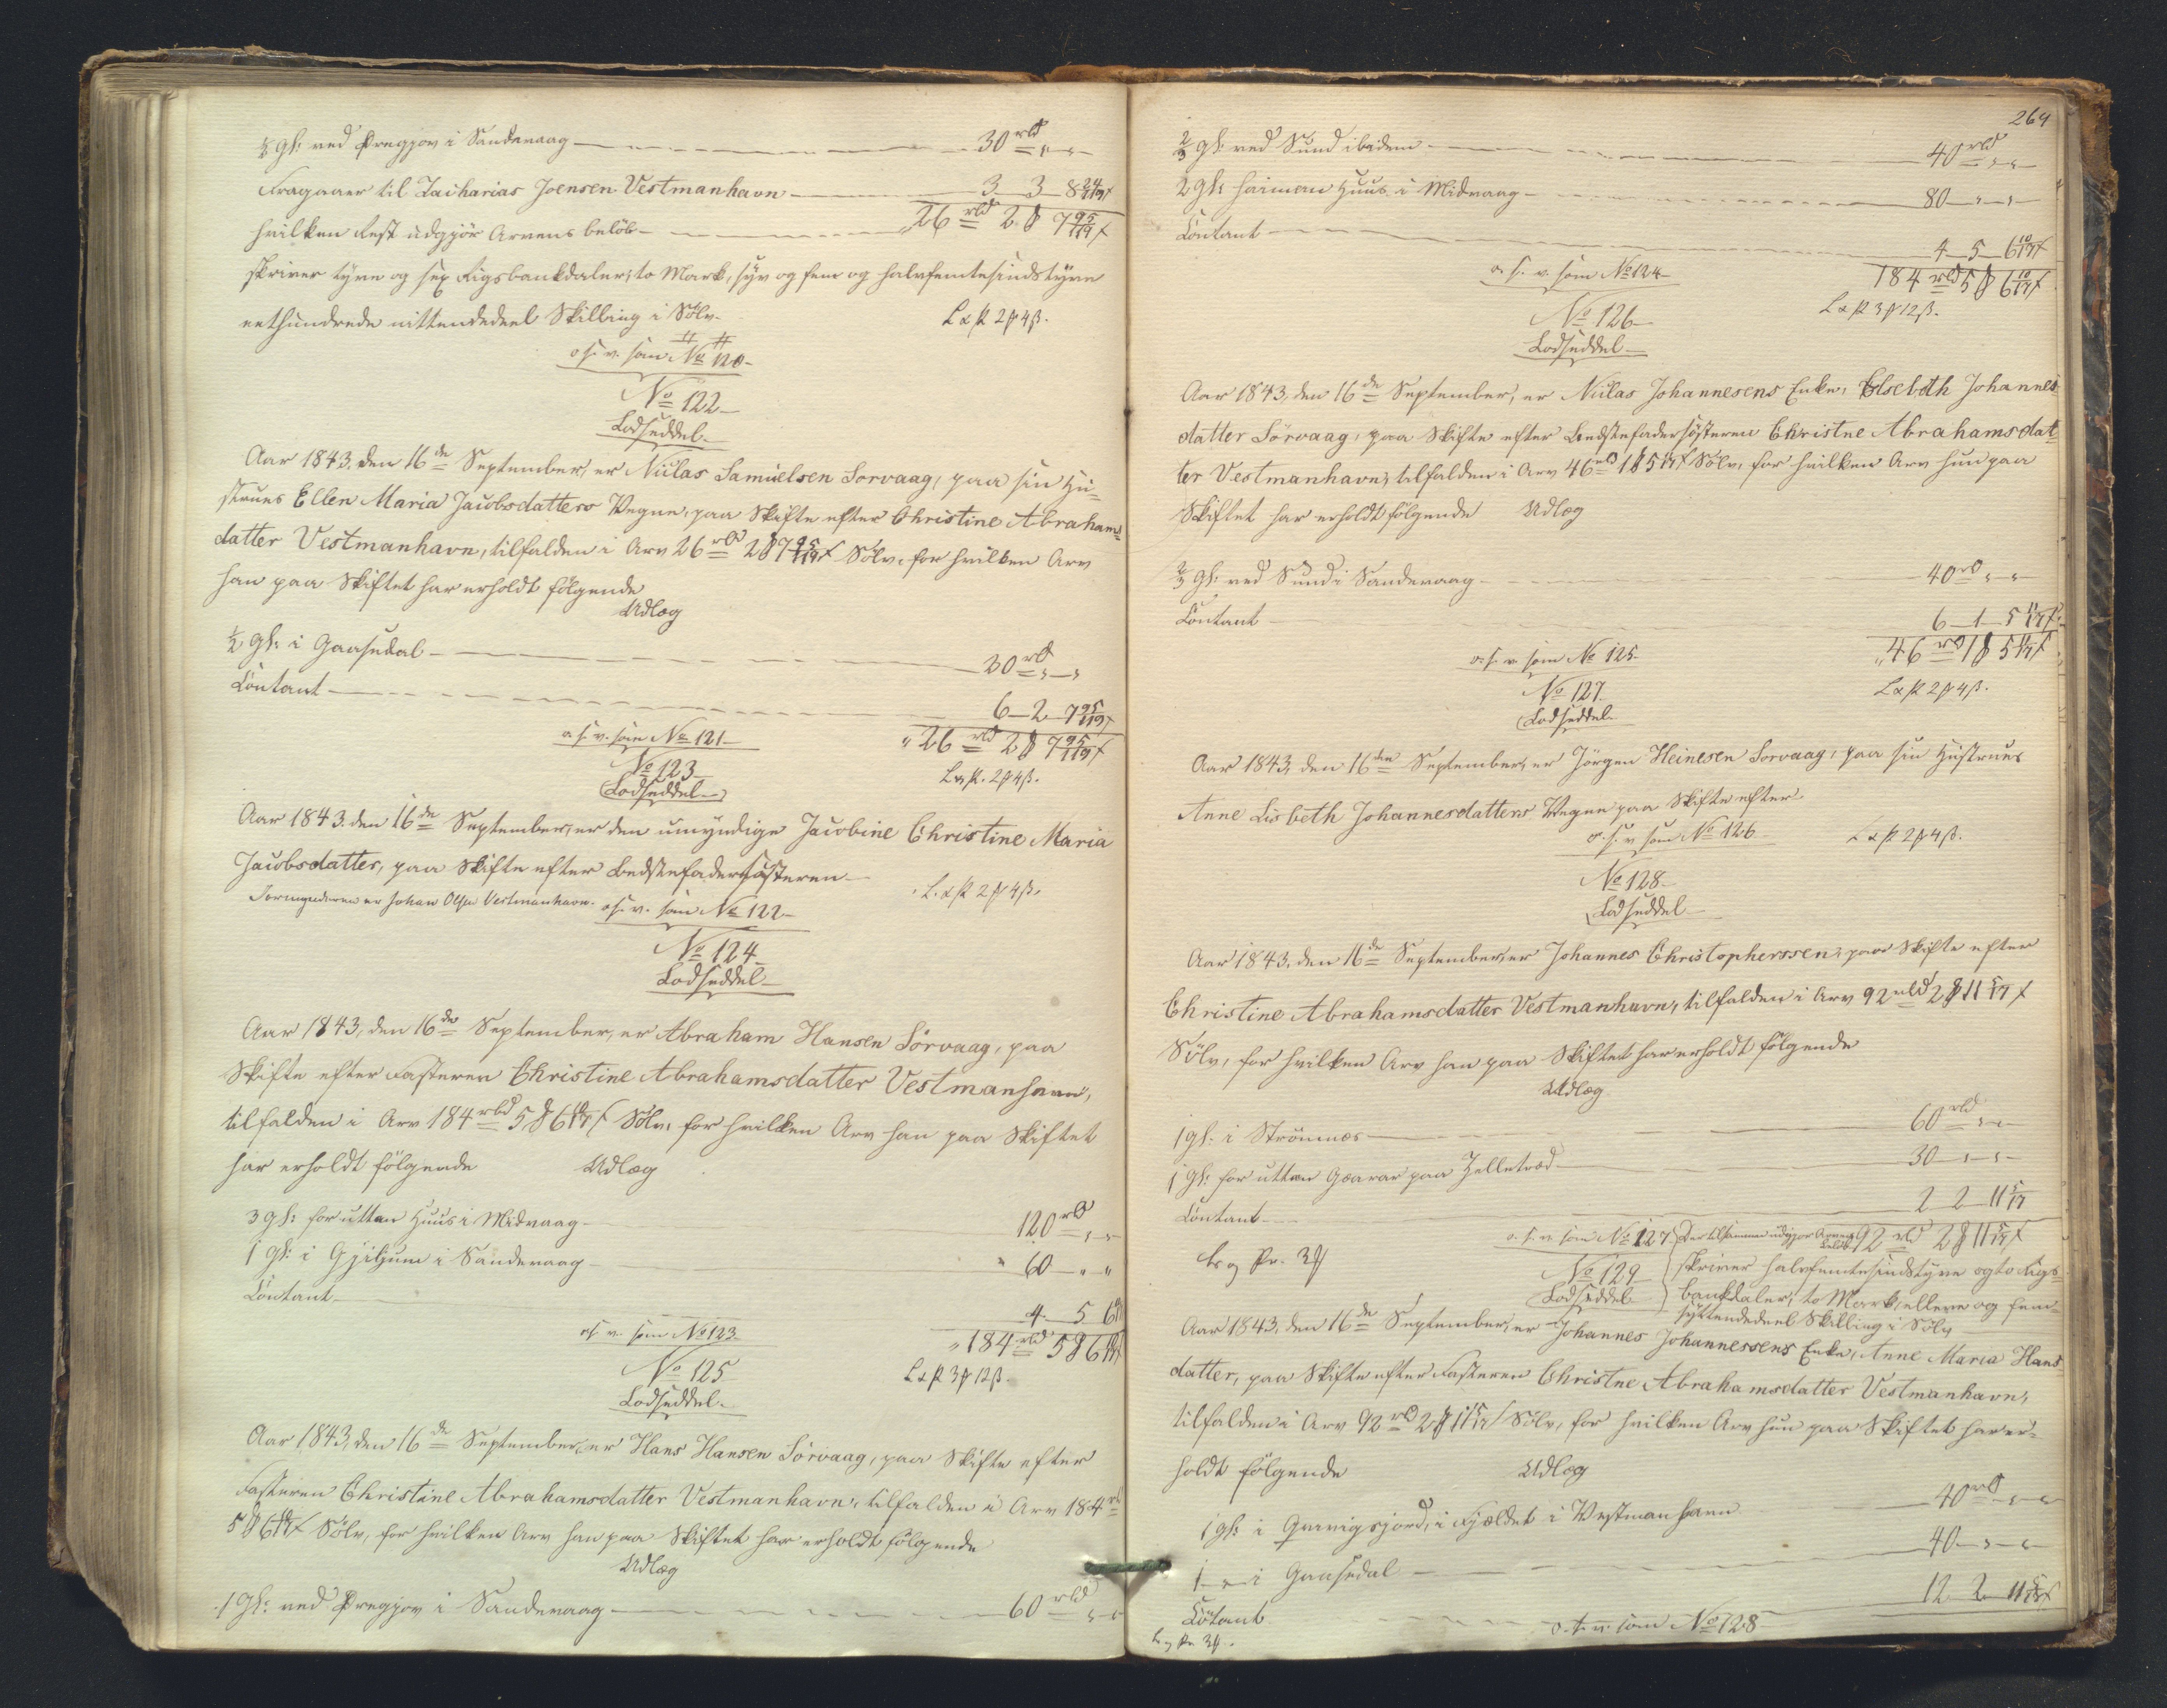 ½ Gl: ved Dregjov i Sandevaag 30 rbd " "
Fragaaer til Zacharias Joensen Vestmanhavn 3 3 8 24/119 s
hvilken Rest udgjör Arvens belöb 26 rbd 2 m 7 95/119 s
skriver tyve og sex Rigsbankdaler, to Mark, syv og fem og halvfemtesindstyve
eethundrede nittendedeel Skilling i Sölv.
o. s. v. som No 120
No 122
Lodseddel
Aar 1843, den 16de September, er Niclas Samuelsen Sorvaag, paa sin Hu-
strues Ellen Maria Jacobsdatters Vegne, paa Skifte efter Christine Abrahams-
datter Vestmanhavn, tilfalden i Arv 26 rbd 2 m 7 95/119 s Sölv, for hvilken Arv
han paa Skiftet har erholdt fölgende
Udlæg
½ Gl: i Gaasedal 20 rbd " "
Contant 6 2 7 95/119 s
26 rbd 2 m 7 95/119 s
o. s. v. som No 121
No 123
Lodseddel
Aar 1843. den 16de September, er den umyndige Jacobine Christine Maria
Jacobsdatter, paa Skifte efter Bedstefadersösteren
Formynderen er Johan Olsen Vestmanhavn. o. s. v. som No 122
No 124
Lodseddel
Aar 1843, den 16de September, er Abraham Hansen Sörvaag, paa
Skifte efter Fasteren Christine Abrahamsdatter Vestmanhavn,
tilfalden i Arv 184 rbd 5 m 6 10/17 s Sölv, for hvilken Arv han paa Skiftet
har erholdt fölgende Udlæg
3 Gl: foruttan Huus i Midvaag 120 rbd " "
1 Gl: i Gjiljum i Sandevaag 60 " "
Contant 4 5 6 10/17
184 rbd 5 m 6 10/17 s
o. s. v. som No 123
No 125
Lodseddel
Aar 1843, den 16de September, er Hans Hansen Sörvaag, paa Skifte efter
Fasteren Christine Abrahamsdatter Vestmanhavn, tilfalden i Arv 184 rbd
5 m 6 10/17 s Sölv, for hvilken Arv han paa Skiftet har erholdt fölgende
Udlæg
1 Gl: ved Dregjov i Sandevaag 60 rbd " "
264
⅔ Gl: ved Sund ibidem 40 rbd " "
2 Gl: Huus i Midvaag 80 " "
Contant 4 5 6 10/17 s
184 rbd 5 m 6 10/17 s
o. s. v. som No 124
No 126
Lodseddel
Aar 1843, den 16de September, er Niclas Johannesens Enke, Elsebeth Johannes-
datter Sörvaag, paa Skifte efter Bedstefadersösteren Christne Abrahamsdat-
ter Vestmanhavn, tilfalden i Arv 46 rbd 1 m 5 11/17 s Sölv, for hvilken Arv hun paa
Skiftet har erholdt fölgende Udlæg
⅔ Gl: ved Sund i Sandevaag 40 rbd " "
Contant 6 1 5 11/17 s
46 rbd 1 m 5 11/17 s
o. s. v. som No 125
No 127
Lodseddel
Aar 1843, den 16de September, er Jörgen Heinesen Sorvaag, paa sin Hustrues
Anne Lisbeth Johannesdatters Vegne paa Skifte efter
o. s. v. som No 126
No 128
Lodseddel
Aar 1843, den 16de September, er Johannes Christopherssen, paa Skifte efter
Christine Abrahamsdatter Vestmanhavn, tilfalden i Arv 92 rbd 2 m 11 5/17 s
Sölv, for hvilken Arv han paa Skiftet har erholdt fölgende
Udlæg
1 Gl: i Strömnæs 60 rbd " "
1 Gl: for uttan Gaarar paa Zelletræd 30 " "
Contant 2 2 11 5/17
o. s. v. som No 127 Der tilsammen udgjör Arvens Belöb 92 rbd 2 m 11 5/17 s
skriver halvfemtesindstyve og to Rigs-
No 129
Lodseddel bankdaler, to Mark, elleve og fem
syttendedeel Skilling i Sölv
Aar 1843, den 16de September, er Johannes Johannessens Enke, Anne Maria Hans-
datter, paa Skifte efter Fasteren Christne Abrahamsdatter Vestmanhavn,
tilfalden i Arv 92 rbd 2 m 11 5/17 s Sölv, for hvilken Arv hun paa Skiftet har er-
holdt fölgende Udlæg
1 Gl: i Qvivigsjord, i Fjældet i Vestmanhavn 40 rbd " "
1 " i Gaasedal 40 " "
Contant 12 2 11 5/17 s
o. s. v. som No 128